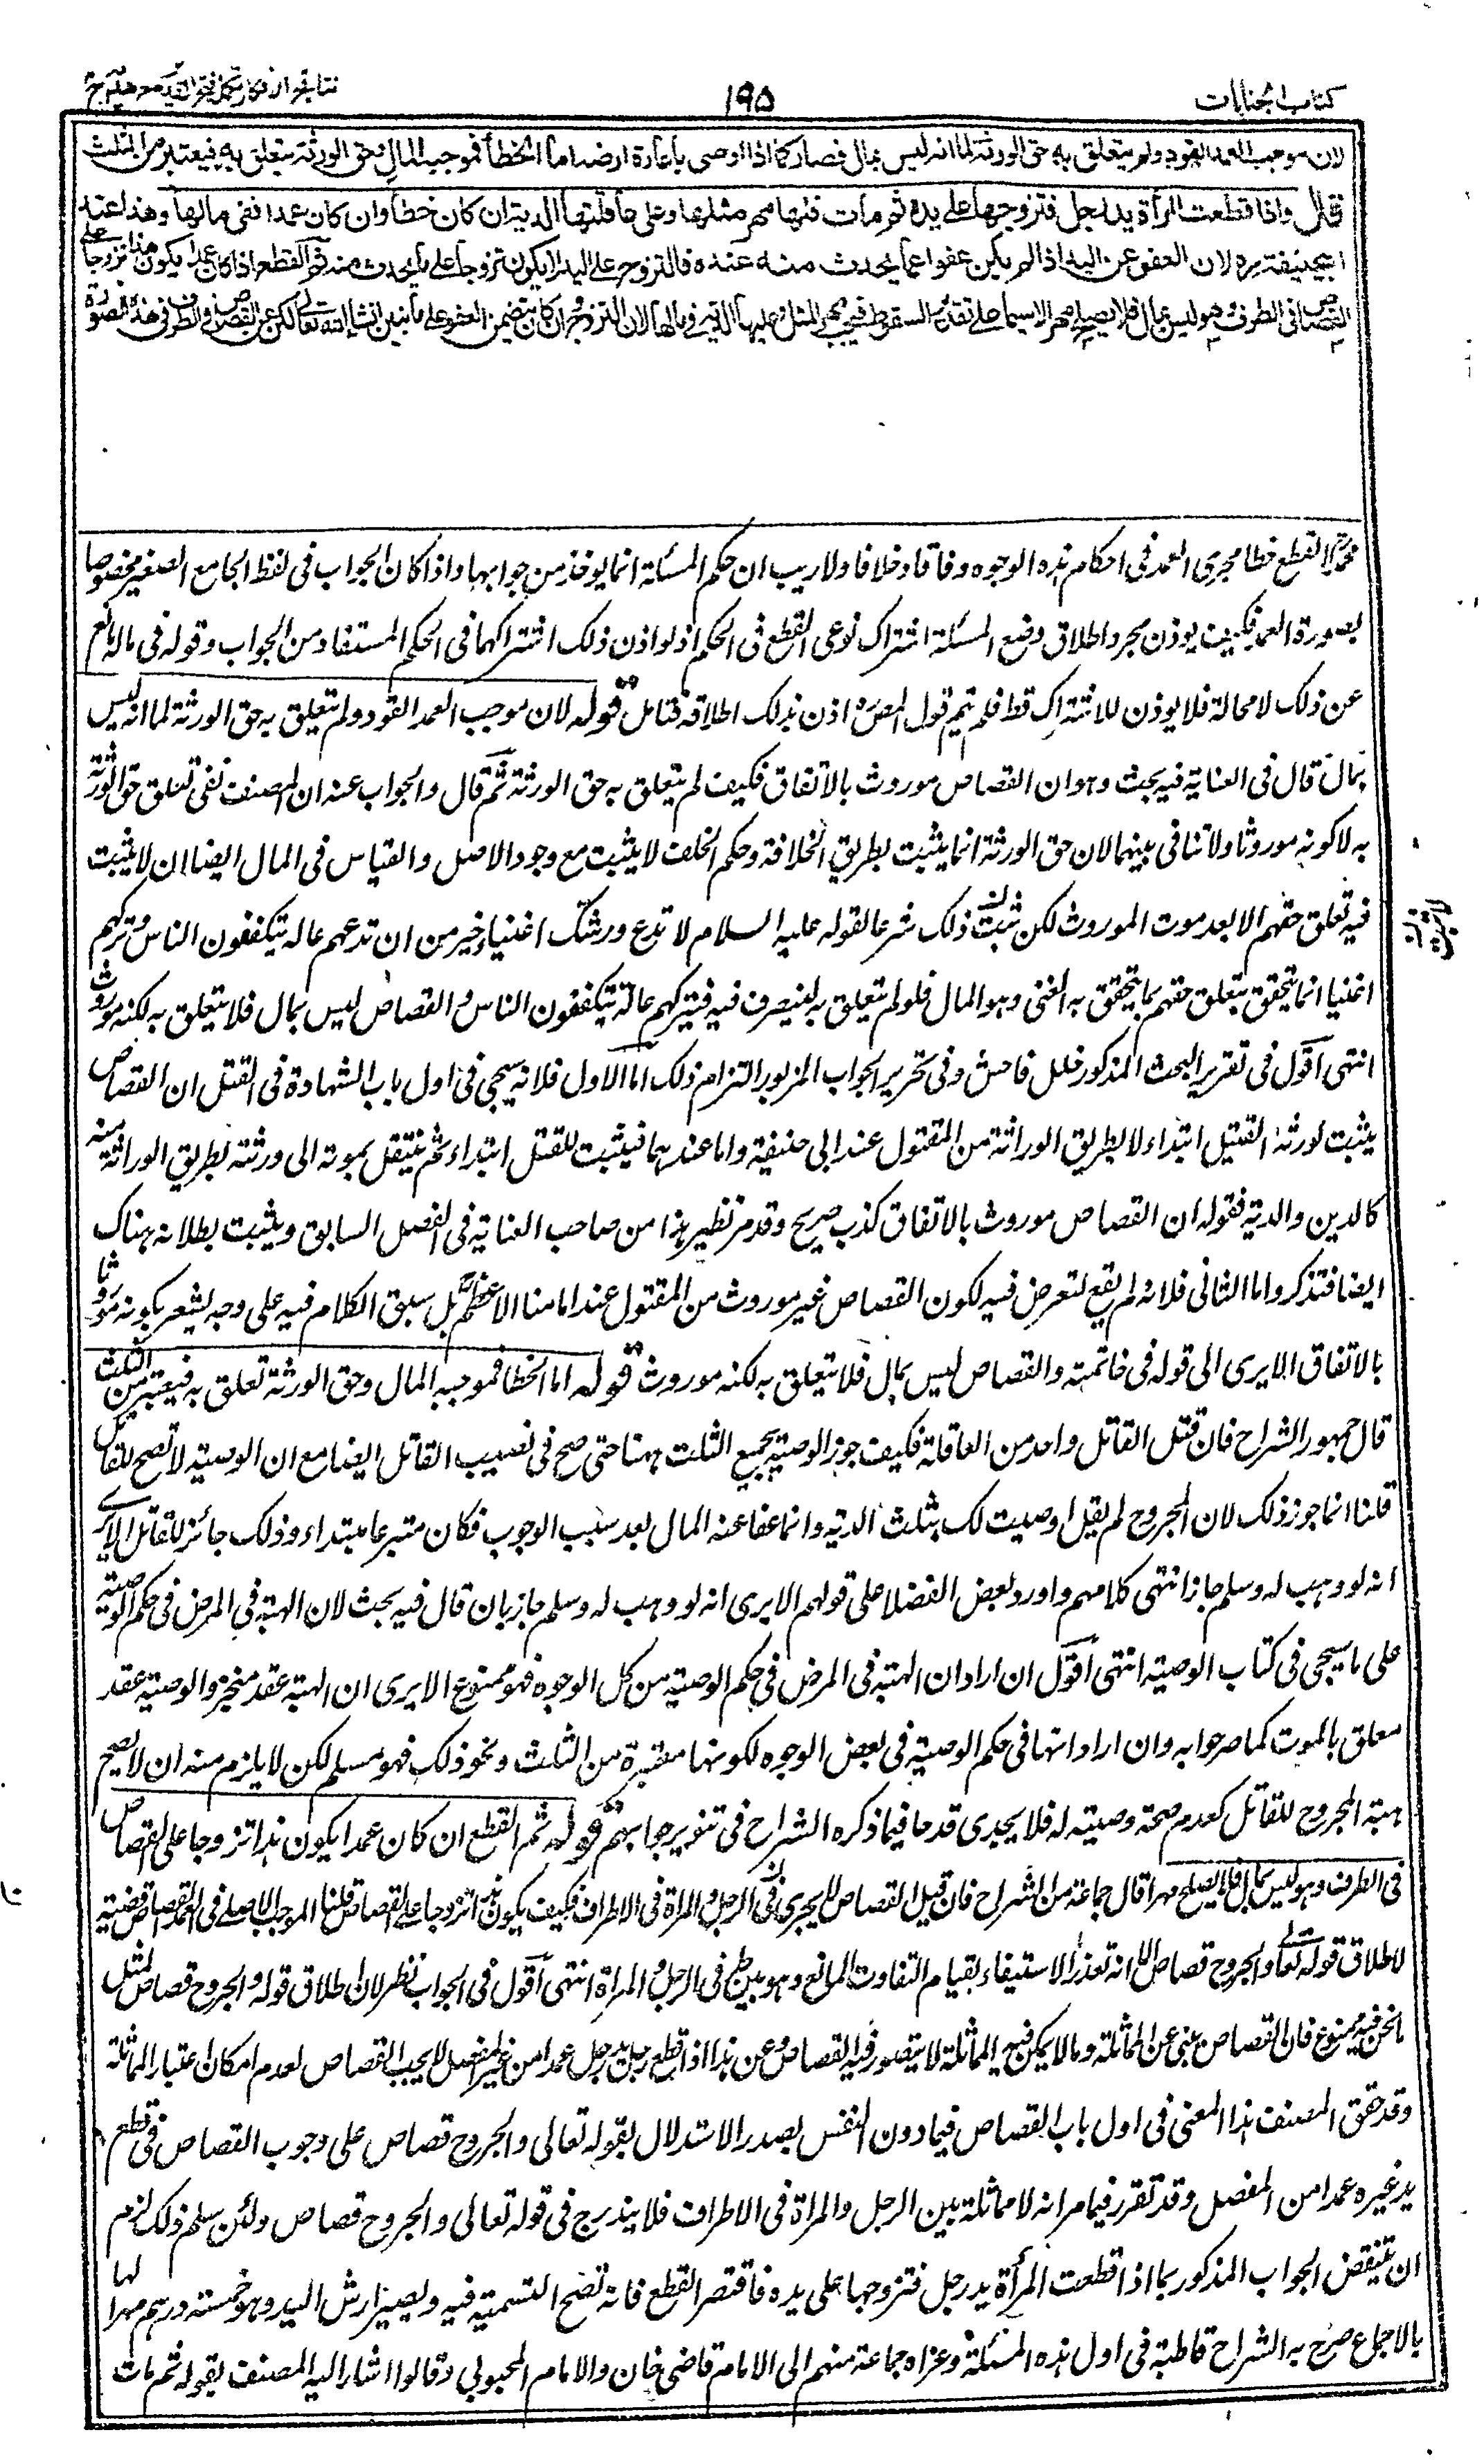 كتاب الجنايات
١٩٥
نتائج الافكار تكملة فتح القدير مع هداية ج
لان موجب العمد القود ولم يتعلق به حق الورثة لما انه ليس بمال فصار كما اذا اوصى باعارة ارضه اما الخطأ فموجبه المال وحق الورثة يتعلق به فيعتبر من الثلث
قال واذا قطعت المرأة يد رجل فتزوجها على يده ثم مات فلها مهر مثلها وعلى عاقلتها الدية ان كان خطأ وان كان عمدا ففى مالها وهذا عند
ابيحنيفة ره لان العفو عن اليد اذا لم يكن عفوا عما يحدث منه عنده فالتزوج على اليد لا يكون تزوجا على ما يحدث منه ثم القطع اذا كان عمدا يكون هذا تزوجا على
القصاص فى الطرف وهو ليس بمال فلا يصلح مهرا لا سيما على تقدير السقوط فيجب مهر المثل وعليها الدية فى مالها لان التزوج وان كان يتضمن العفو على ما نبين انشاء الله تعالى لكن عن القصاص فى الطرف فى هذه الصورة
محمدا القطع خطا مجرى العمد فى احكام هذه الوجوه وفاقا وخلافا ولا ريب ان حكم المسألة انما يوخذ من جوابها واذا كان الجواب فى لفظ الجامع الصغير مخصوصا
بصورة العمد فكيف يوذن مجرد اطلاق وضع المسئلة اشتراك نوعى القطع فى الحكم اذ لو اذن ذلك اشتراكهما فى الحكم المستفاد من الجواب وقوله فى ماله مانع
عن ذلك لا محالة فلا يوذن للاشتراك قط فلم يتم قول المصره اذن بذلك اطلاقه فتامل قوله لان موجب العمد القود ولم يتعلق به حق الورثة لما انه ليس
بمال قال فى العناية فيه بحث وهو ان القصاص موروث بالاتفاق فكيف لم يتعلق به حق الورثة ثم قال والجواب عنه ان المصنف نفى تعلق حق الورثة
به لا كونه موروثا ولا تنافى بينهما لان حق الورثة انما يثبت بطريق الخلافة وحكم الخلف لا يثبت مع وجود الاصل والقياس فى المال ايضا ان لا يثبت
فيه تعلق حقهم الا بعد موت الموروث لكن ثبت ذلك شرعا لقوله عليه السلام لا تدع ورثتك اغنياء خير من ان تدعهم عالة يتكففون الناس وتركهم
اغنيا انما يتحقق بتعلق حقهم بما يتحقق به الغنى وهو المال فلو لم يتعلق به لتصرف فيه فيتركهم عالة يتكففون الناس والقصاص ليس بمال فلا يتعلق به لكنه موروث
انتهى اقول فى تقرير البحث المذكور خلل فاحش وفى تحرير الجواب المزبور التزام ذلك اما الاول فلانه سيجى فى اول باب الشهادة فى القتل ان القصاص
يثبت لورثة القتيل ابتداء لا بطريق الوراثة من المقتول عند ابى حنيفة واما عندهما فيثبت للقتيل ابتداء ثم ينتقل بموته الى ورثته بطريق الوراثة منه
كالدين والدية فقوله ان القصاص موروث بالاتفاق كذب صريح وقد مر نظير هذا من صاحب العناية فى الفصل السابق ويثبت بطلانه هناك
ايضا فتذكر واما الثانى فلانه لم يقع لتعرض فيه لكون القصاص غير موروث من المقتول عند امامنا الاعظم بل سبق الكلام فيه على وجه يشعر بكونه موروثا
بالاتفاق الا يرى الى قوله فى خاتمته والقصاص ليس بمال فلا يتعلق به لكنه موروث قوله اما الخطا فموجبه المال وحق الورثة تعلق به فيعتبر من الثلث
قال جمهور الشراح فان قيل القاتل واحد من العاقلة فكيف جوز الوصية بجميع الثلث ههنا حتى صح فى نصيب القاتل ايضا مع ان الوصية لا تصح للقاتل
قلنا انما جوز ذلك لان المجروح لم يقل اوصيت لك بثلث الدية وانما عفا عنه المال بعد سبب الوجوب فكان متبرعا مبتداء وذلك جائز للقاتل الا يرى
انه لو وهب له وسلم جاز انتهى كلامهم واورد بعض الفضلا على قولهم الا يرى انه لو وهب له وسلم جاز بان قال فيه بحث لان الهبة فى المرض فى حكم الوصية
على ما سيجى فى كتاب الوصية انتهى اقول ان اراد ان الهبة فى المرض فى حكم الوصية من كل الوجوه فهو ممنوع الا يرى ان الهبة عقد منجز والوصية عقد
معلق بالموت كما صرحوا به وان اراد انها فى حكم الوصية فى بعض الوجوه لكونها معتبرة من الثلث ونحو ذلك فهو مسلم لكن لا يلزم منه ان لا يصح
هبة المجروح للقاتل كعدم صحة وصيته له فلا يجدى قدحا فيما ذكره الشراح فى تنوير جوابهم قوله ثم القطع ان كان عمدا يكون هذا تزوجا على القصاص
فى الطرف وهو ليس بمال فلا يصلح مهرا قال جماعة من الشراح فان قيل القصاص لا يجرى بين الرجل والمراة فى الاطراف فكيف يكون هذا تزوجا على القصاص قلنا الموجب الاصلى فى العمد القصاص قضية
لاطلاق قوله تعالى والجروح قصاص الا انه تعذر الاستيفاء لقيام التفاوت المانع وهو بين طرفى الرجل والمراة انتهى اقول فى الجواب نظر لان اطلاق قوله والجروح قصاص لمثل
مانحن فيه ممنوع فان القصاص ينبى عن المماثلة وما لا يمكن فيه المماثلة لا يتصور فيه القصاص وعن هذا اذا قطع رجل يد رجل عمدا من غير المفصل لا يجب القصاص لعدم امكان اعتبار المماثلة
وقد حقق المصنف هذا المعنى فى اول باب القصاص فيما دون النفس بصدر الاستدلال بقوله تعالى والجروح قصاص على وجوب القصاص فى قطع
يد غيره عمدا من المفصل وقد تقرر فيما مر انه لا مماثلة بين الرجل والمراة فى الاطراف فلا يندرج فى قوله تعالى والجروح قصاص ولئن سلم ذلك لزم
ان ينتقض الجواب المذكور بما اذا قطعت المرأة يد رجل فتزوجها على يده فاقتصر القطع فانه تصح التسمية فيه ويصير ارش اليد وهو خمسة درهم مهرا لها
بالاجماع صرح به الشراح قاطبة فى اول هذه المسئلة وعزاه جماعة منهم الى الامام قاضى خان والامام المحبوبى وقالوا اشار اليه المصنف بقوله ثم مات